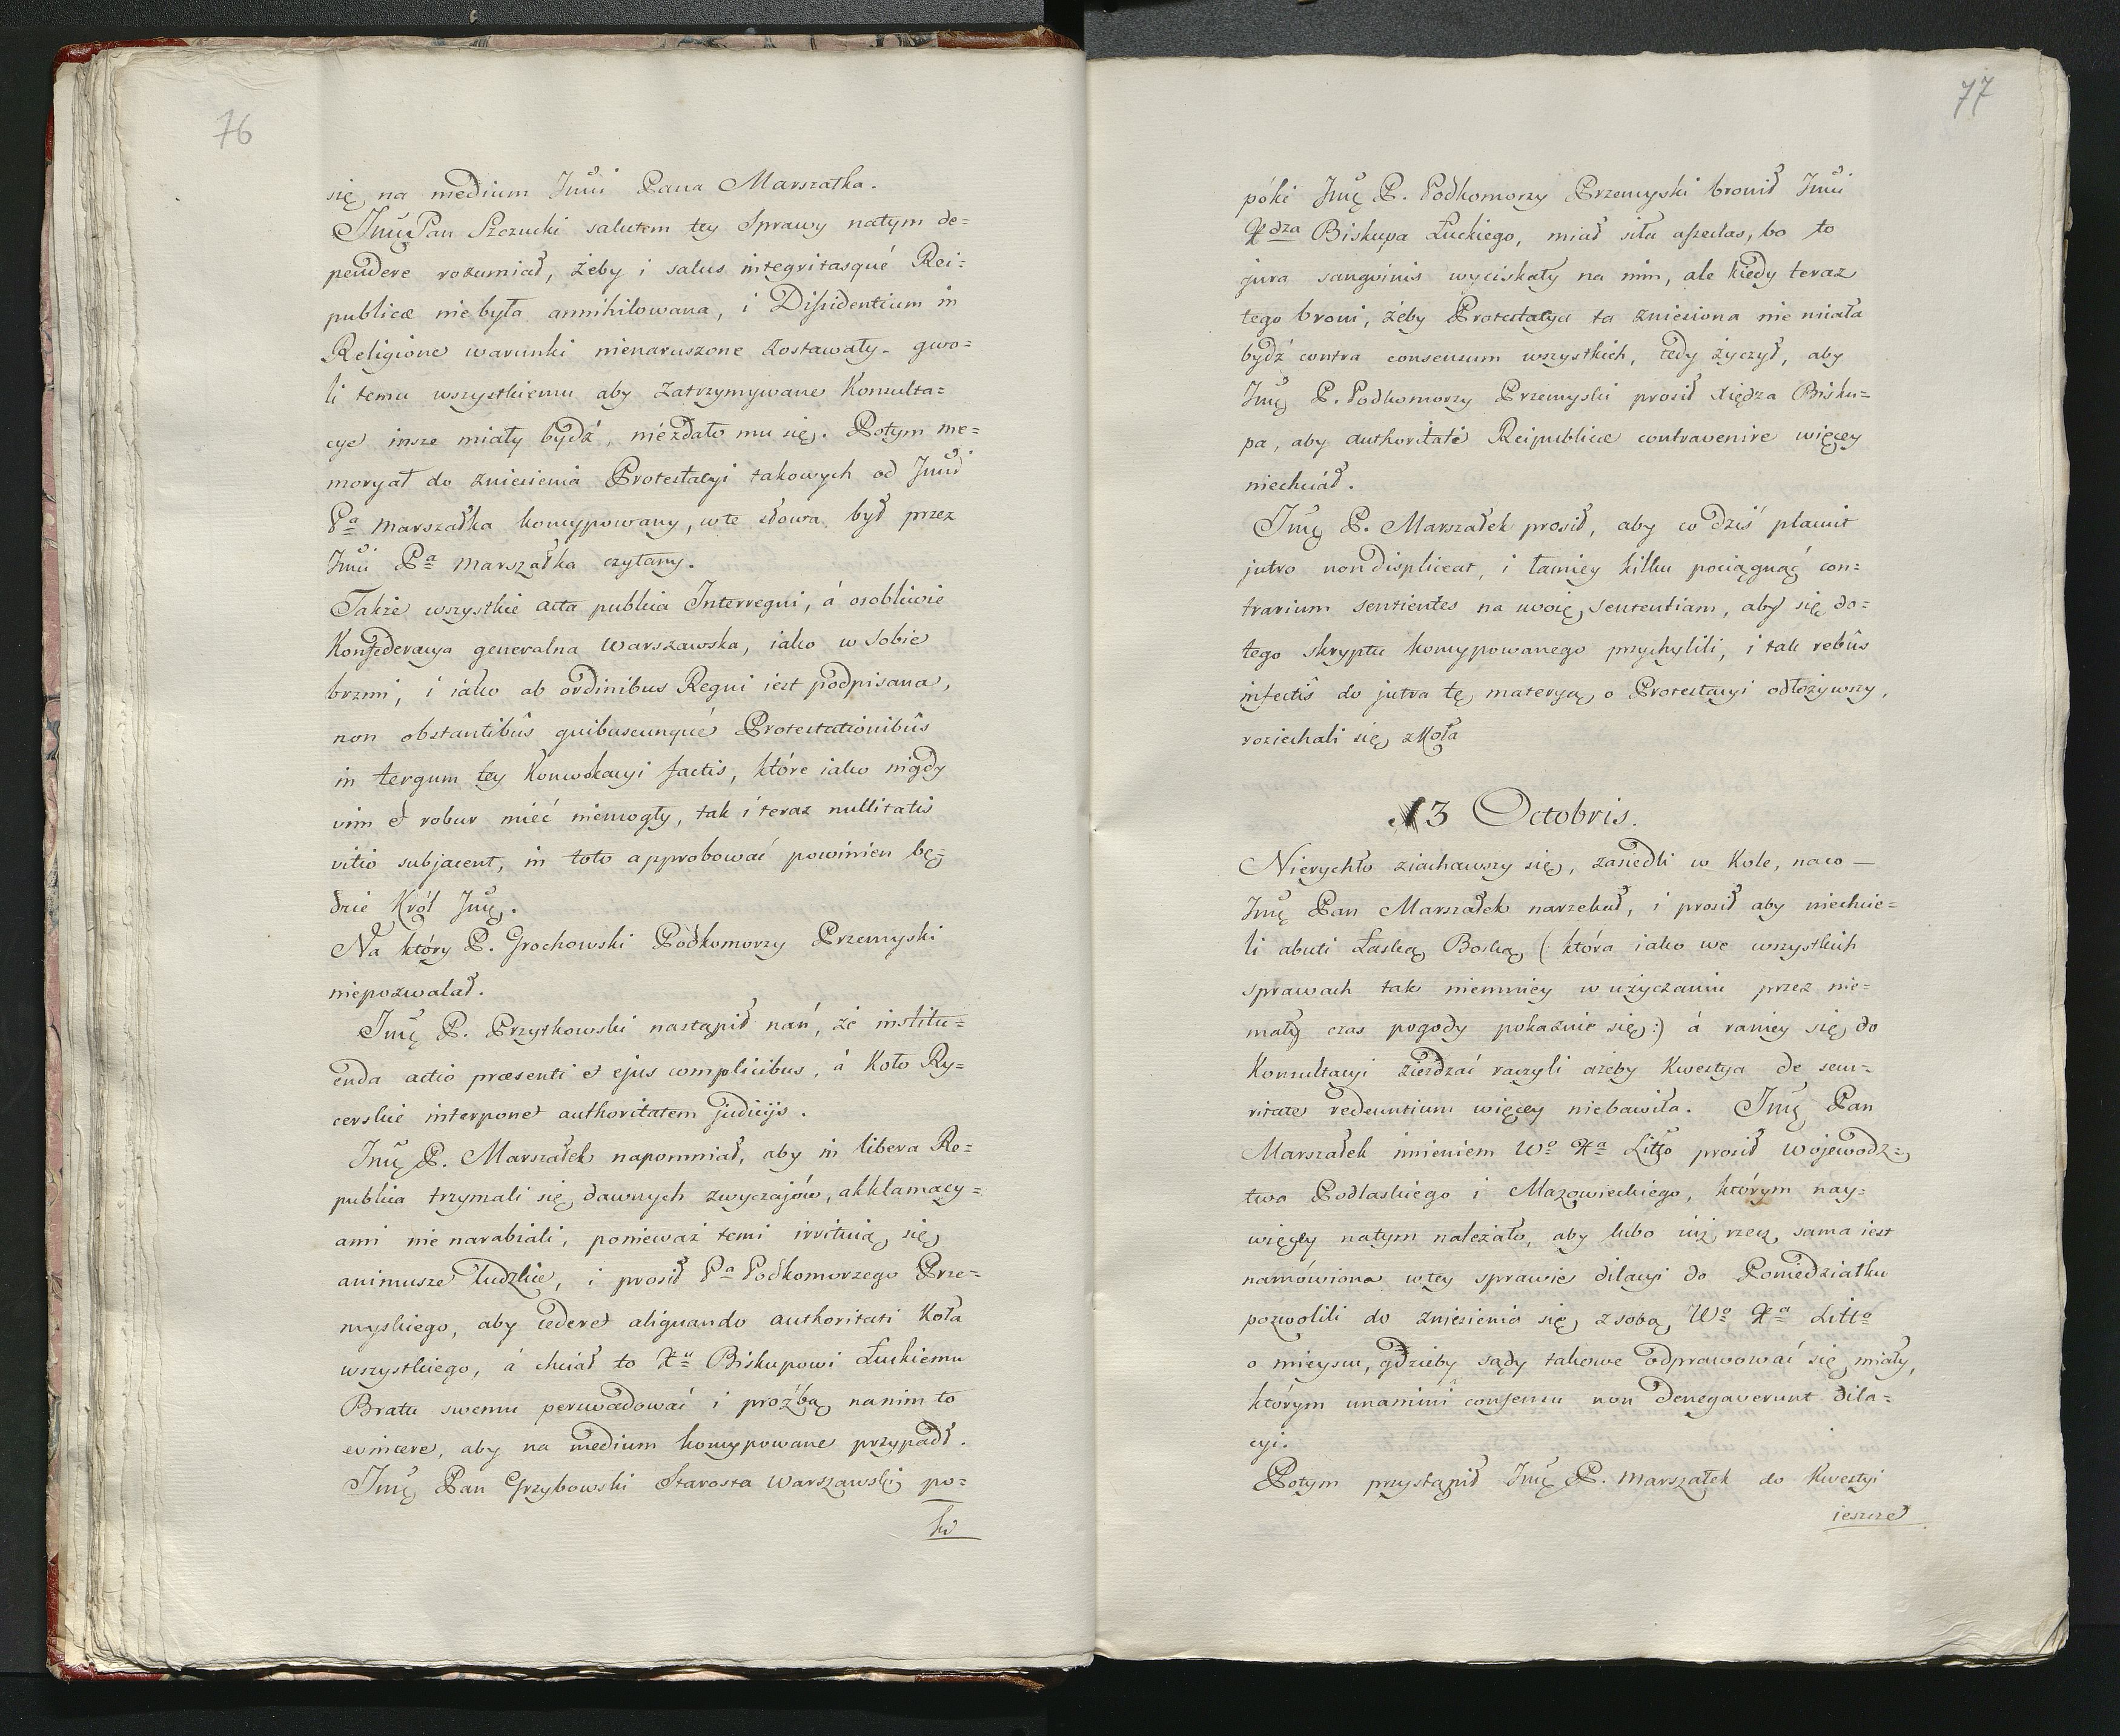 76
się na medium Jmci Pana Marszałka.
Jmę Pan Szczucki salutem tey Sprawy natym de=
pendere rozumiał, żeby i salus integritasqué Rei=
publicæ niebyła annihilowana, i Dissidentium in
Religione warunki nienaruszone zostawały. gwo=
li temu wszystkiemu aby zatrzymywane Konsulta=
cye insze miały bydź, niezdało mu się. Potym me=
moryał do zniesienia Protestacyi takowych od Jmci
Pa Marszałka koncypowany, wte słowa był przez
Jmci Pa Marszałka czytany.
Także wszystkie acta publica Interregni, á osobliwie
Konfederacya generalna Warszawska, iako w sobie
brzmi, i iako ab ordinibus Regni iest podpisana,
non obstantibûs quibuscunqué Protestationibûs
in tergum tey Konwokacyi factis, które iako nigdy
vim et robur mieć niemogły, tak i teraz nullitatis
vitio subjacent, in toto approbować powinien bę=
dzie Król Jmę.
Na który P. Grochowski Podkomorzy Przemyski
niepozwalał.
Jmę P. Przytkowski nastąpił nań, że institu=
enda actio præsenti et ejus complicibus, á Koło Ry=
cerskie interponet authoritatem judicijs.
Jmę P. Marszałek napomniał, aby in libera Re=
publica trzymali się dawnych zwyczajów, akklamacy=
ami nie narabiali, ponieważ temi irrituią się
animusze ludzkie, i prosił Pa Podkomorzego Prze=
myskiego, aby cederet aliquando authoritati Koła
wszystkiego, á chciał to Xu Biskupowi Łuckiemu
Bratu swemu perswadować i proźbą nanim to
evincere, aby na medium koncypowane przypadł.
Jmę Pan Grzybowski Starosta Warszawski po=
ki
77
póki Jmę P. Podkomorzy Przemyski bronił Jmci
Xdza Biskupa Łuckiego, miał siła asseclas, bo to
jura sangvinis wyciskały na nim, ale kiedy teraz
tego broni, żeby Protestatya ta zniesiona nie miała
bydź contra consensum wszystkich, tedy życzył, aby
Jmę P. Podkomorzy Przemyski prosił Xiędza Bisku=
pa, aby authoritati Reipublicæ contravenire więcey
niechciał.
Jmę P. Marszałek prosił, aby co dziś placuit
jutro non displiceat, i łacniey kilku pociągnąć con=
trarium sentientes na swoię sententiam, aby się do=
tego skryptu koncypowanego przychylili, i tak rebûs
infectis do jutra tę materyą o Protestacyi odłożywszy,
roziechali się z Koła
13 Octobris.
Nierychło ziachawszy się, zasiedli w Kole, naco —
Jmę Pan Marszałek narzekał, i prosił aby niechcie=
li abuti Łaską Boską (: która iako we wszystkich
sprawach tak niemniey w użyczaniu przez nie=
mały czas pogody pokazuie się:) á raniey się do
Konsultacyi zieżdzać raczyli ażeby Kwestya de secu=
ritate redeuntium więcey niebawiła. Jmę Pan
Marszałek imieniem Wo Xa Littgo prosił Wojewodz=
twa Podlaskiego i Mazowieckiego, którym nay=
więcey natym należało, aby lubo iuż rzecz sama iest
namówiona wtey sprawie dilacyi do Poniedziałku
pozwolili do zniesienia się z sobą Wo Xa Litto
o mieyscu, gdzieby sądy takowe odprawować się miały,
którym unanimi consensu non denegaverunt dila=
cyi.
Potym przystąpił Jmę P. Marszałek do Kwestyi
ieszcze